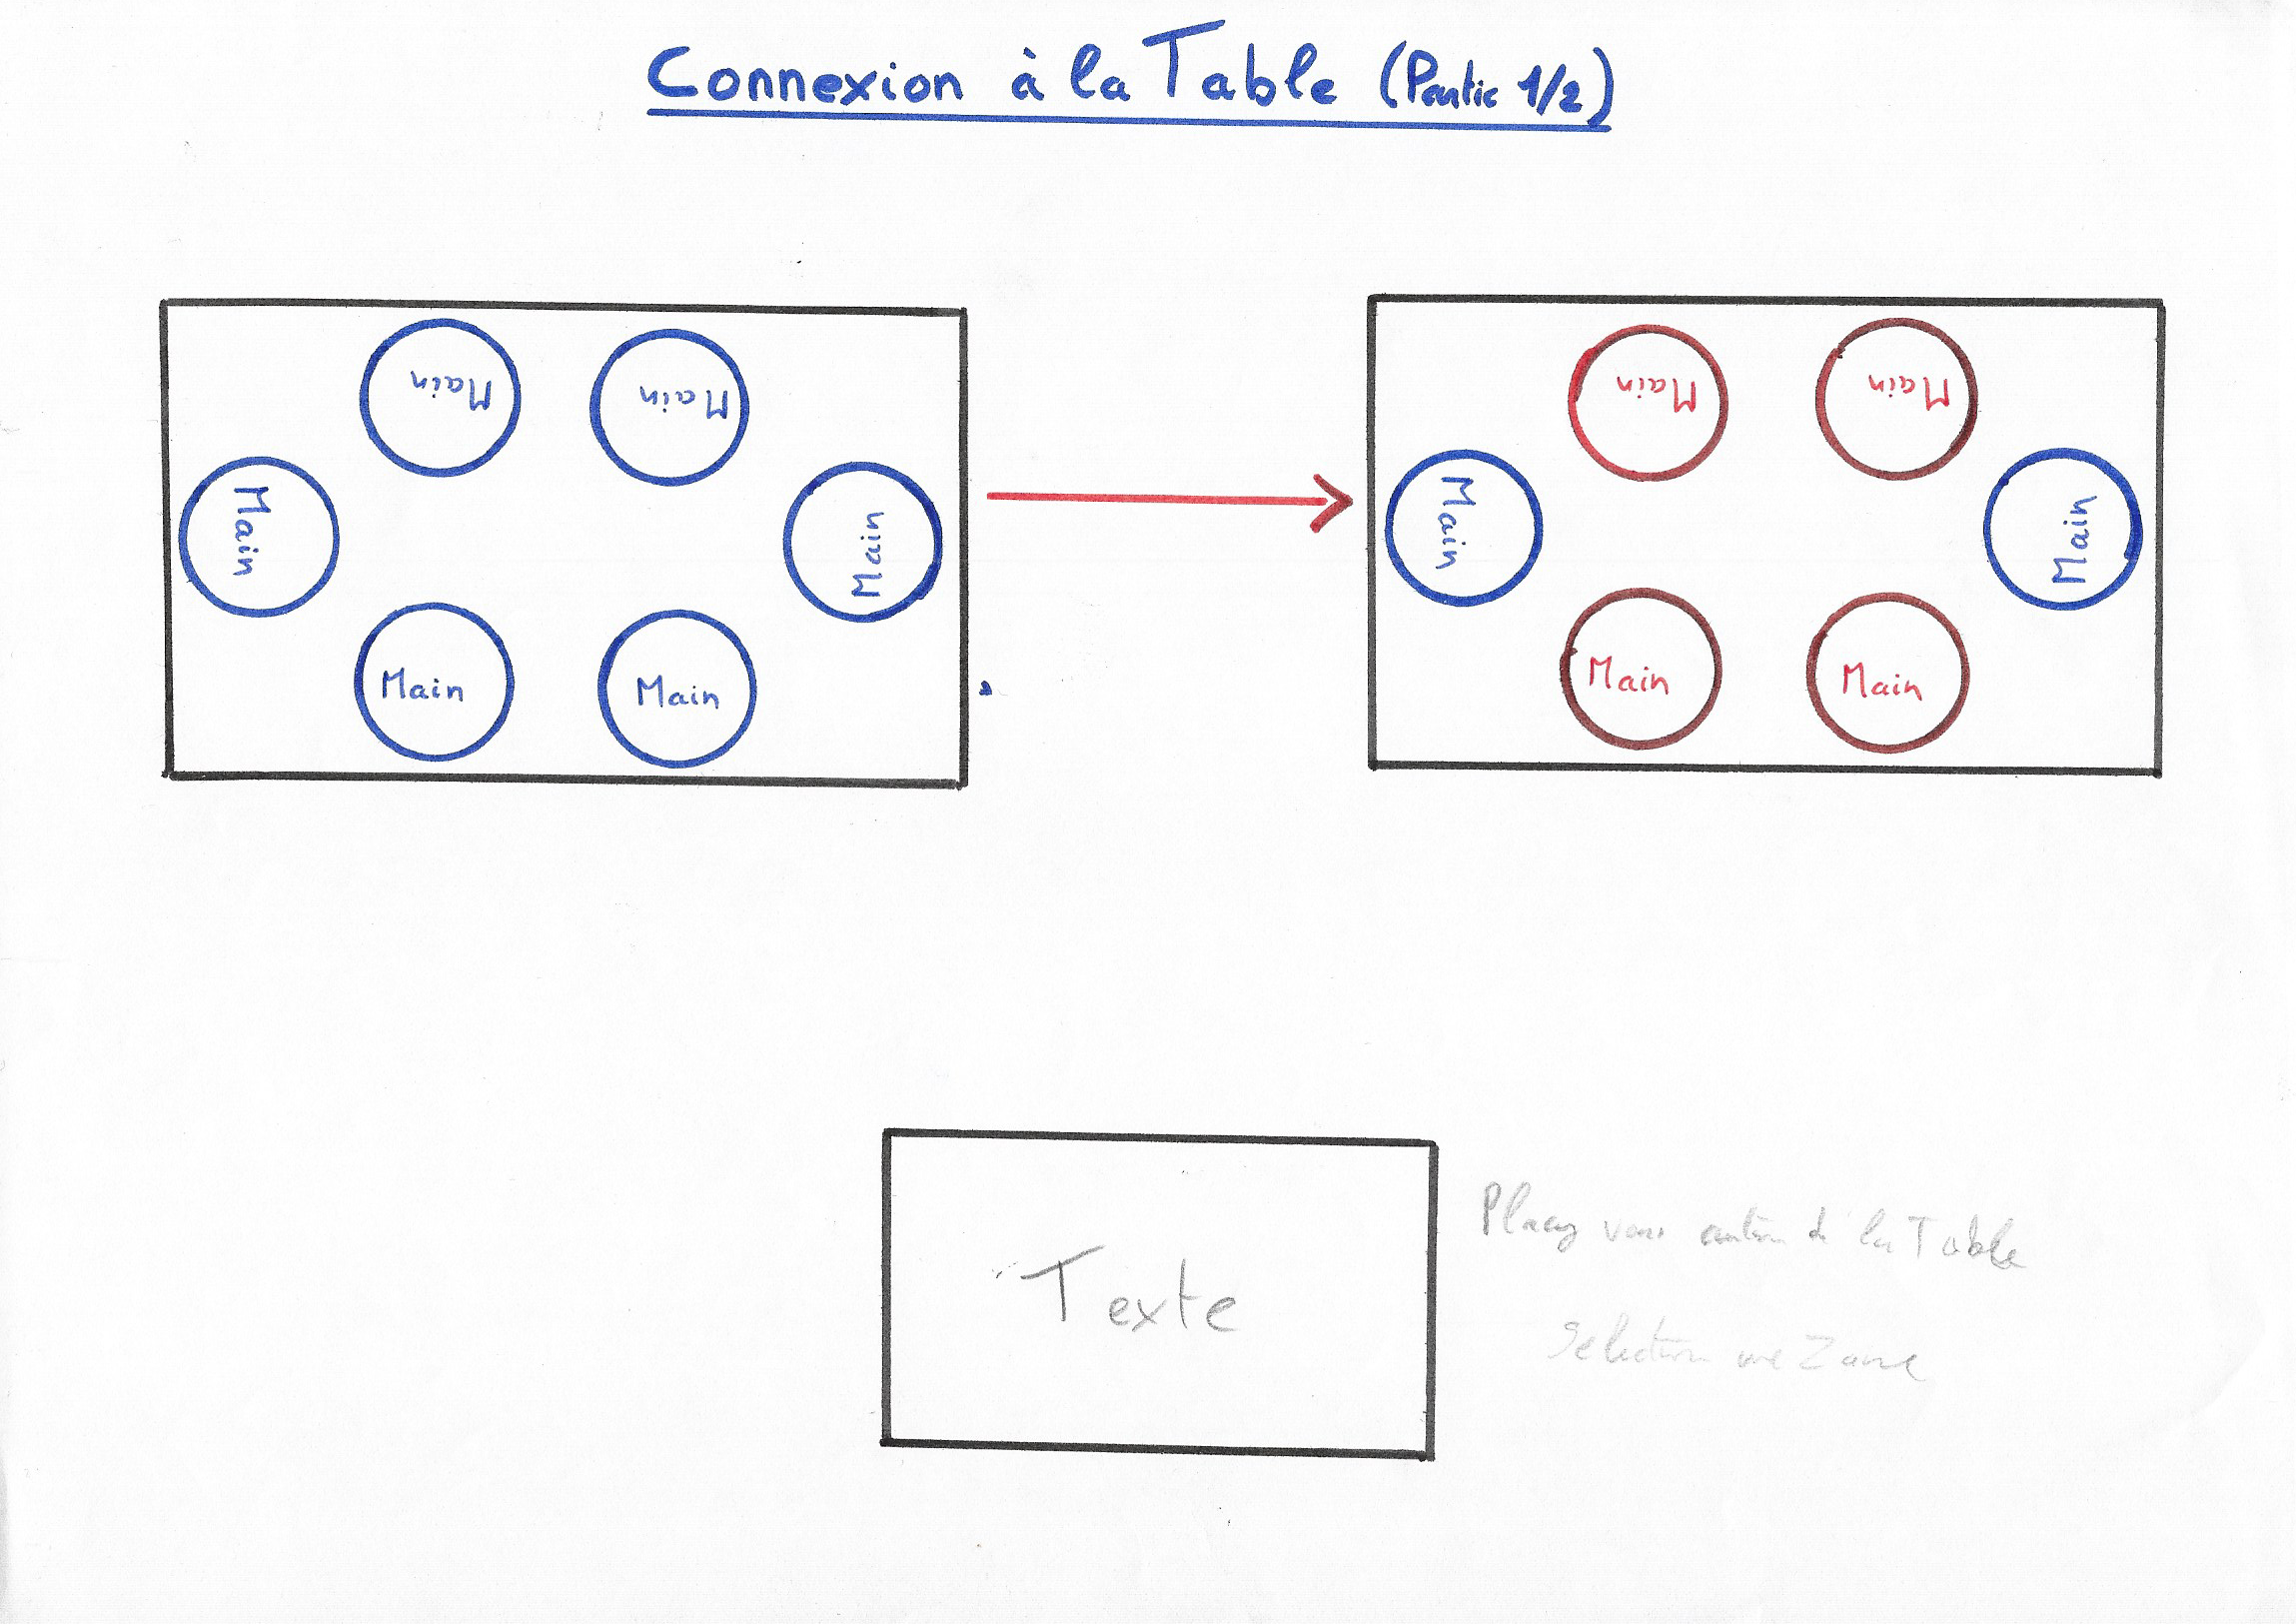 Connexion à la Table (Partie 1/2)
Main Main
Main Main
Main Main
Main Main
Main Main
Main Main
Texte
Placez vous autour de la Table
Selection une Zone